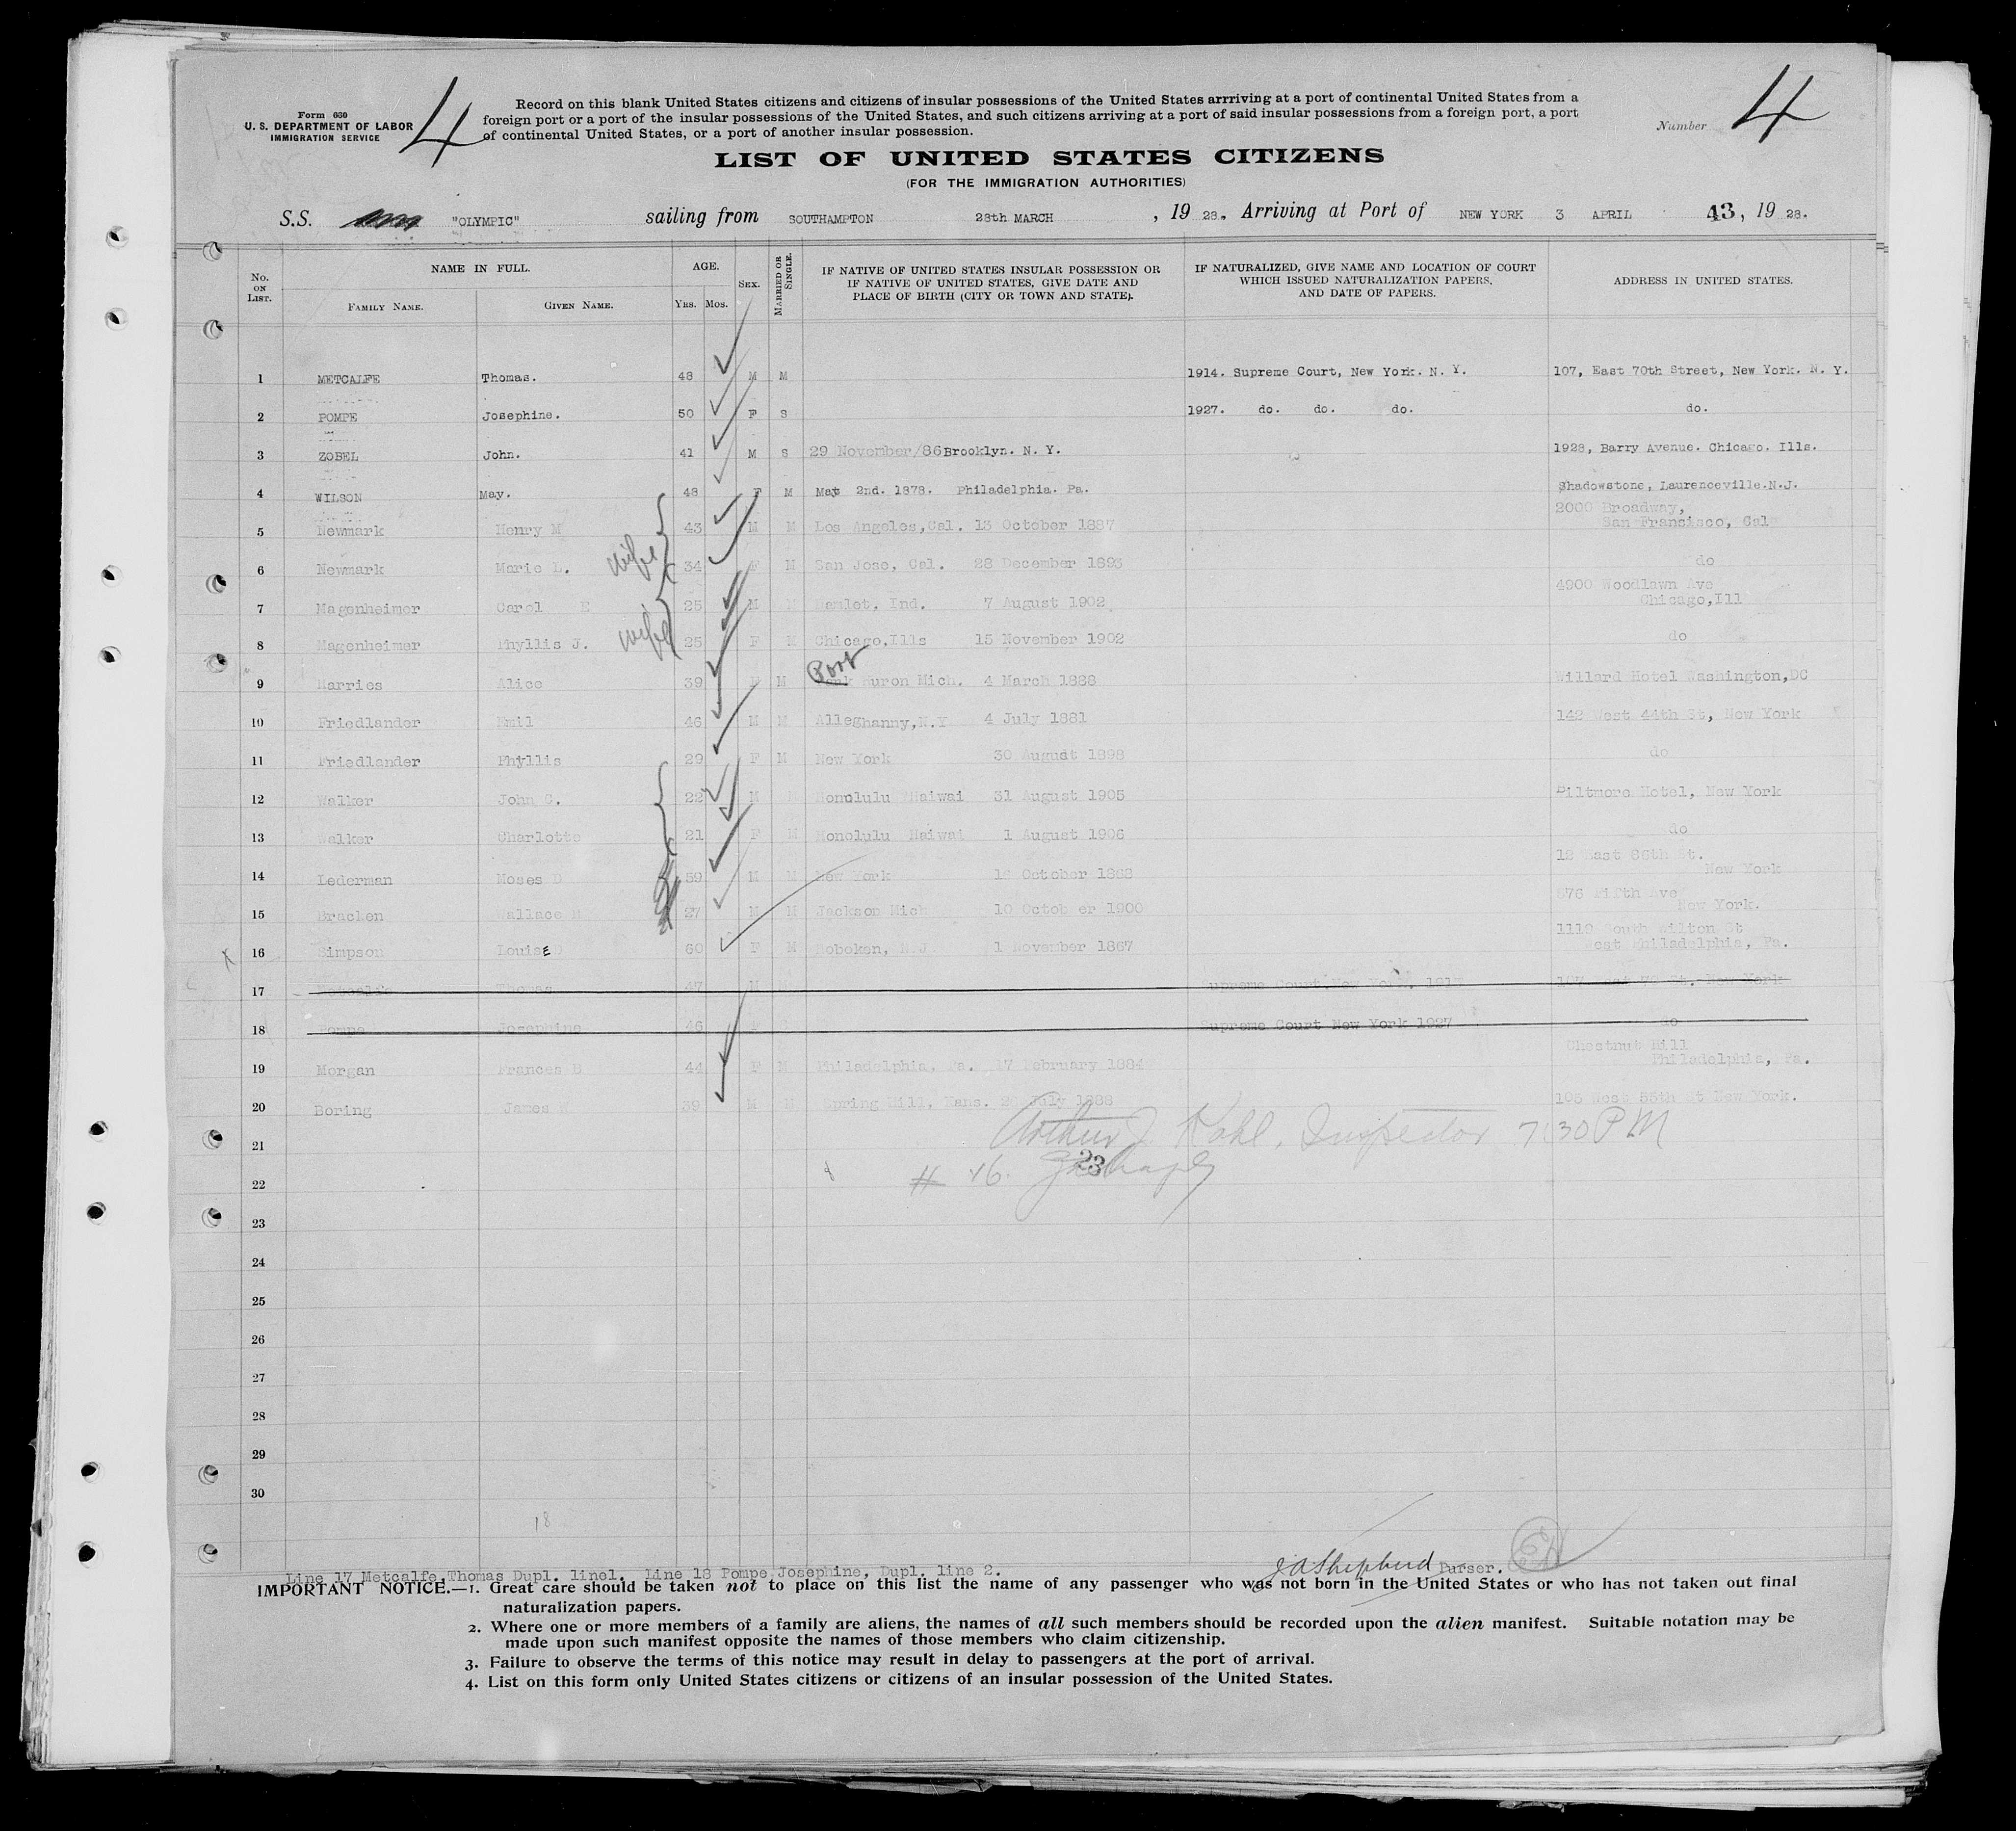 4
Form 630
U. S. DEPARTMENT OF LABOR
IMMIGRATION SERVICE
Record on this blank United States citizens and citizens of insular possessions of the United States arrriving at a port of continental United States from a
foreign port or a port of the insular possessions of the United States, and such citizens arriving at a port of said insular possessions from a foreign port, a port
of continental United States, or a port of another insular possession.
Number 4
LIST OF UNITED STATES CITIZENS
(FOR THE IMMIGRATION AUTHORITIES)
S.S. "OLYMPIC" sailing from SOUTHAMPTON 28th MARCH , 19 28. Arriving at Port of NEW YORK 3 APRIL 43, 19 28.
No. ON LIST. NAME IN FULL. FAMILY NAME. GIVEN NAME. AGE. YRS. MOS. SEX. MARRIED OR SINGLE. IF NATIVE OF UNITED STATES INSULAR POSSESSION OR IF NATIVE OF UNITED STATES, GIVE DATE AND PLACE OF BIRTH (CITY OR TOWN AND STATE). IF NATURALIZED, GIVE NAME AND LOCATION OF COURT WHICH ISSUED NATURALIZATION PAPERS, AND DATE OF PAPERS. ADDRESS IN UNITED STATES.
1 METCALFE Thomas. 48 M M 1914. Supreme Court, New York. N. Y. 107, East 70th Street, New York. N. Y.
2 POMPE Josephine. 50 F S 1927. do. do. do. do.
3 ZOBEL John. 41 M S 29 November/86 Brooklyn. N. Y. 1928, Barry Avenue. Chicago. Ills.
4 WILSON May. 48 F M 2nd. 1878. Philadelphia. Pa. Shadowstone, Laurenceville.N.J.
5 Newmark Henry M 43 M M Los Angeles,Cal. 13 October 1887 2000 Broadway, San Francisco, Cal
6 Newmark Marie L. wife 34 F M San Jose, Cal. 28 December 1893 do
7 Magenheimer Carol E 25 M M Hamlet, Ind. 7 August 1902 4900 Woodlawn Ave Chicago,Ill
8 Magenheimer Phyllis J. wife 25 F M Chicago,Ills 15 November 1902 do
9 Harries Alice 39 F M Port Huron Mich. 4 March 1888 Willard Hotel Washington,DC
10 Friedlander Emil 46 M M Alleghanny,N.Y 4 July 1881 142 West 44th St, New York
11 Friedlander Phyllis 29 F M New York 30 August 1898 do
12 Walker John S. 22 M M Honolulu Haiwai 31 August 1905 Biltmore Hotel, New York
13 Walker Charlotte 21 F M Honolulu Haiwai 1 August 1906 do
14 Lederman Moses D 59 M M New York October 1868 12 East 86th St. New York
15 Bracken Wallace 27 M M Jackson Mich 10 October 1900 876 Fifth Ave New York.
16 Simpson LouisE 60 F M Hoboken, N.J 1 November 1867 1110 South Wilton St West Philadelphia, Pa.
17 Metcalfe Thomas 47 M Supreme Court New York. 107 East 70 St. New York
18 Pompe Josephine 46 Supreme Court New York 1927 do
19 Morgan Frances B 44 F M Philadelphia, Pa. 17 February 1884 Chestnut Hill Philadelphia, Pa.
20 Boring James 39 M M Spring Hill, Kans. July 1888 105 West 55th St New York.
Arthur J. Kohl, Inspector 7:30 PM
21
23
22
23
24
25
26
27
28
29
30
18
J A Shepherd Purser.
Line 17 Metcalfe,Thomas Dupl. line1. Line 18 Pompe,Josephine, Dupl. line 2.
IMPORTANT NOTICE.—1. Great care should be taken not to place on this list the name of any passenger who was not born in the United States or who has not taken out final
naturalization papers.
2. Where one or more members of a family are aliens, the names of all such members should be recorded upon the alien manifest. Suitable notation may be
made upon such manifest opposite the names of those members who claim citizenship.
3. Failure to observe the terms of this notice may result in delay to passengers at the port of arrival.
4. List on this form only United States citizens or citizens of an insular possession of the United States.